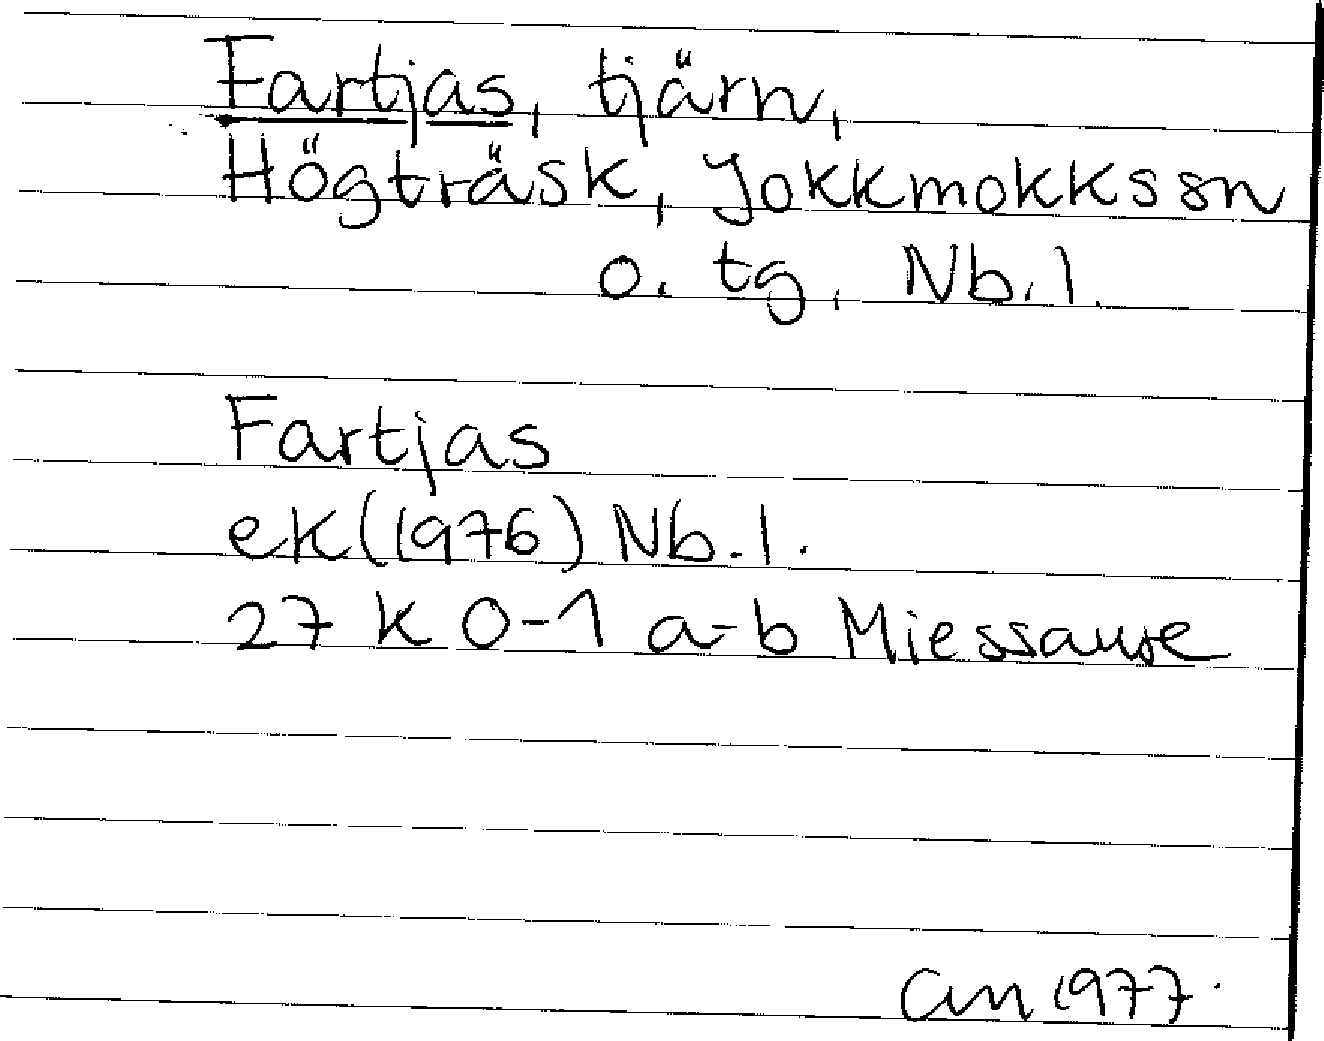 Fartjas, tjärn,
Högträsk, Jokkmokks sn
o. tg, Nb. l.
Fartjas
ek (1976) Nb. l.
27 K 0-1 a-b Miessaure
1977.